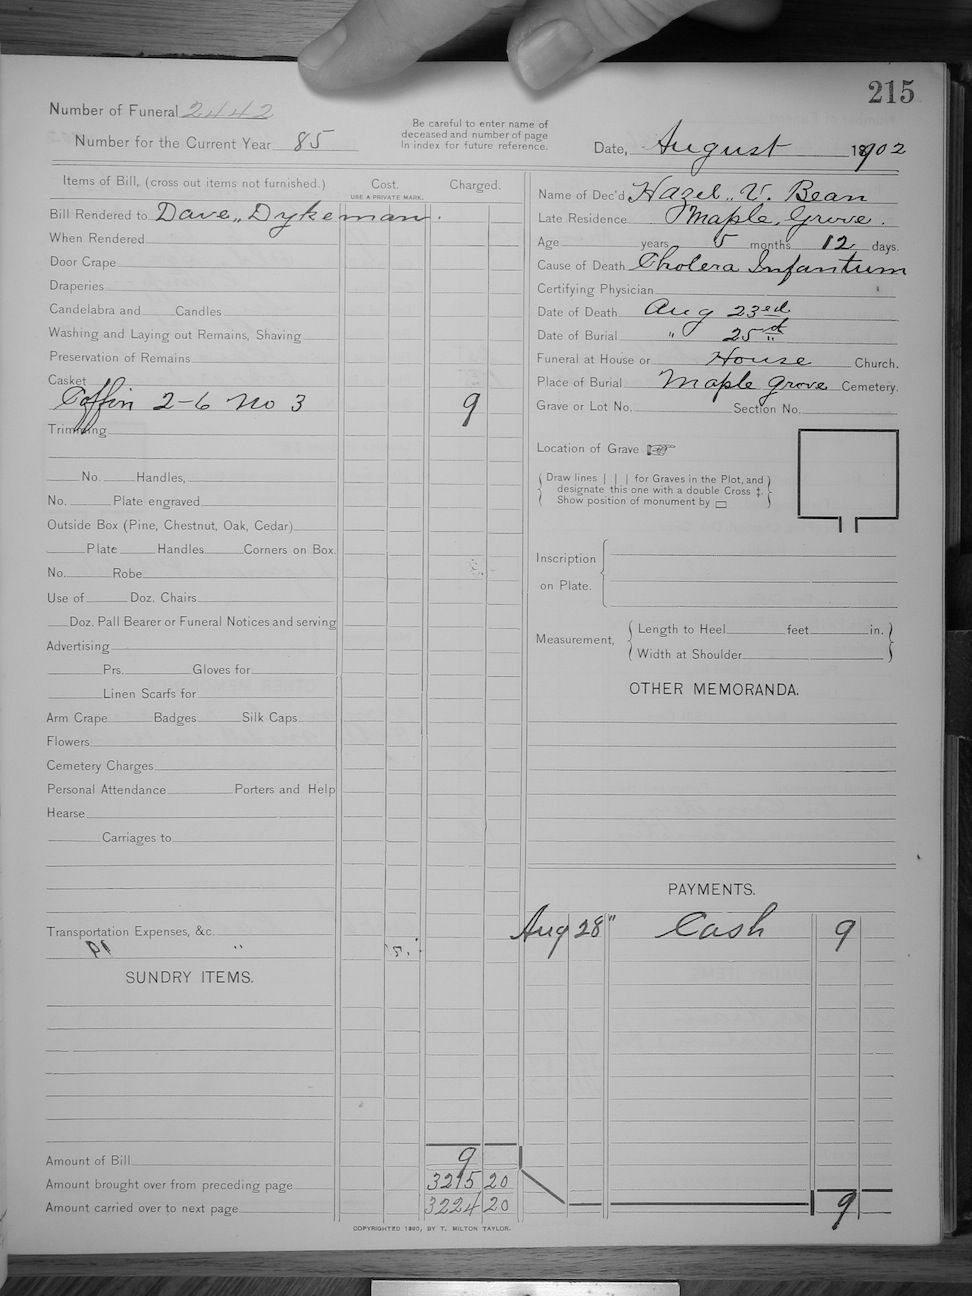 215
Number of Funeral 2442
Be careful to enter name of
deceased and number of page
in index for future reference.
Number for the Current Year 85
Date, August 1902
Items of Bill, (cross out items not furnished.) Cost. Charged.
USE A PRIVATE MARK.
Bill Rendered to Dave,, Dykeman.
When Rendered
Door Crape
Draperies
Candelabra and Candles
Washing and Laying out Remains, Shaving
Preservation of Remains
Casket
Coffin 2-6 No 3 9
Trimming
No. Handles,
No. Plate engraved
Outside Box (Pine, Chestnut, Oak, Cedar)
Plate Handles Corners on Box.
No. Robe
Use of Doz. Chairs
Doz. Pall Bearer or Funeral Notices and serving
Advertising
Prs. Gloves for
Linen Scarfs for
Arm Crape Badges Silk Caps
Flowers
Cemetery Charges
Personal Attendance Porters and Help
Hearse
Carriages to
Transportation Expenses, &c.
SUNDRY ITEMS.
Amount of Bill 9
Amount brought over from preceding page 3215 20
Amount carried over to next page 3224 20
Name of Dec'd Hazel,, V. Bean
Late Residence Maple,, Grove.
Age years 5 months 12 days.
Cause of Death Cholera Infantum
Certifying Physician
Date of Death Aug 23rd
Date of Burial " 25
Funeral at House or House Church.
Place of Burial Maple Grove Cemetery.
Grave or Lot No. Section No.
Location of Grave
Draw lines | | | for Graves in the Plot, and
designate this one with a double Cross ‡.
Show position of monument by ▭
Inscription
on Plate.
Measurement,
Length to Heel feet in.
Width at Shoulder
OTHER MEMORANDA.
PAYMENTS.
Aug 28" Cash 9
9
COPYRIGHTED 1890, BY T. MILTON TAYLOR.